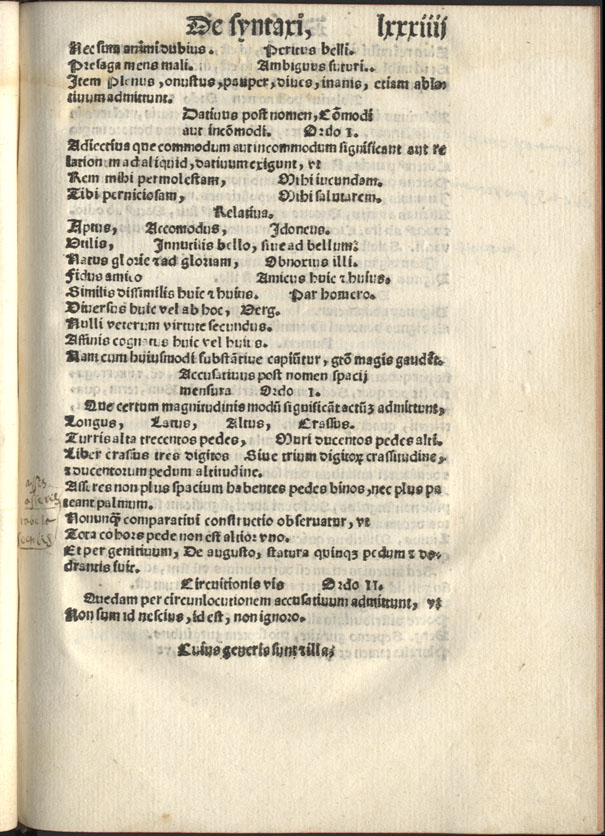 De syntaxi, lxxxiiij
Nec sum animi dubius. Peritus belli.
Presaga mens mali. Ambiguus futuri..
Item Plenus, onustus, pauper, diues, inanis, etiam abla⸗
tiuum admittunt.
Datiuus post nomen, Cōmodi
aut incōmodi. Ordo I.
Adiectiua que commodum aut incommodum significant aut re
lationem ad aliquid, datiuum exigunt, vt
Rem mihi permolestam, Mihi iucundam.
Tibi perniciosam, Mihi salutarem.
Relatiua.
Aptus, Accomodus, Idoneus.
Vtilis, Innutilis bello, siue ad bellum:
Natus glorie ⁊ ad gloriam, Obnoxius illi.
Fidus amico Amicus huic ⁊ huius.
Similis dissimilis huic ⁊ huius. Par homero.
Diuersus huic vel ab hoc, Verg.
Nulli veterum virtute secundus.
Affinis cognatus huic vel huius.
Nam cum huiusmodi substātiue capiūtur, gtō magis gaudēt.
Accusatiuus post nomen spacij
mensura Ordo I.
Que certum magnitudinis modū significāt actūꝫ admittunt,
Longus, Latus, Altus, Crassus.
Turris alta trecentos pedes, Muri ducentos pedes alti.
Liber crassus tres digitos Siue trium digitoꝝ crassitudine,
⁊ ducentorum pedum altitudine.
Asseres non plus spacium habentes pedes binos, nec plus pa
teant palmum.
Nonunq̄ comparatiui constructio obseruatur, vt
Tota cohors pede non est altior vno.
Et per genitiuum, De augusto, statura quinqꝫ pedum ⁊ do⸗
drantis fuit.
Circuitionis vis Ordo II.
Quedam per circunlocutionem accusatiuum admittunt, vt
Non sum id nescius, id est, non ignoro.
Cuius generis sunt ⁊ illa: